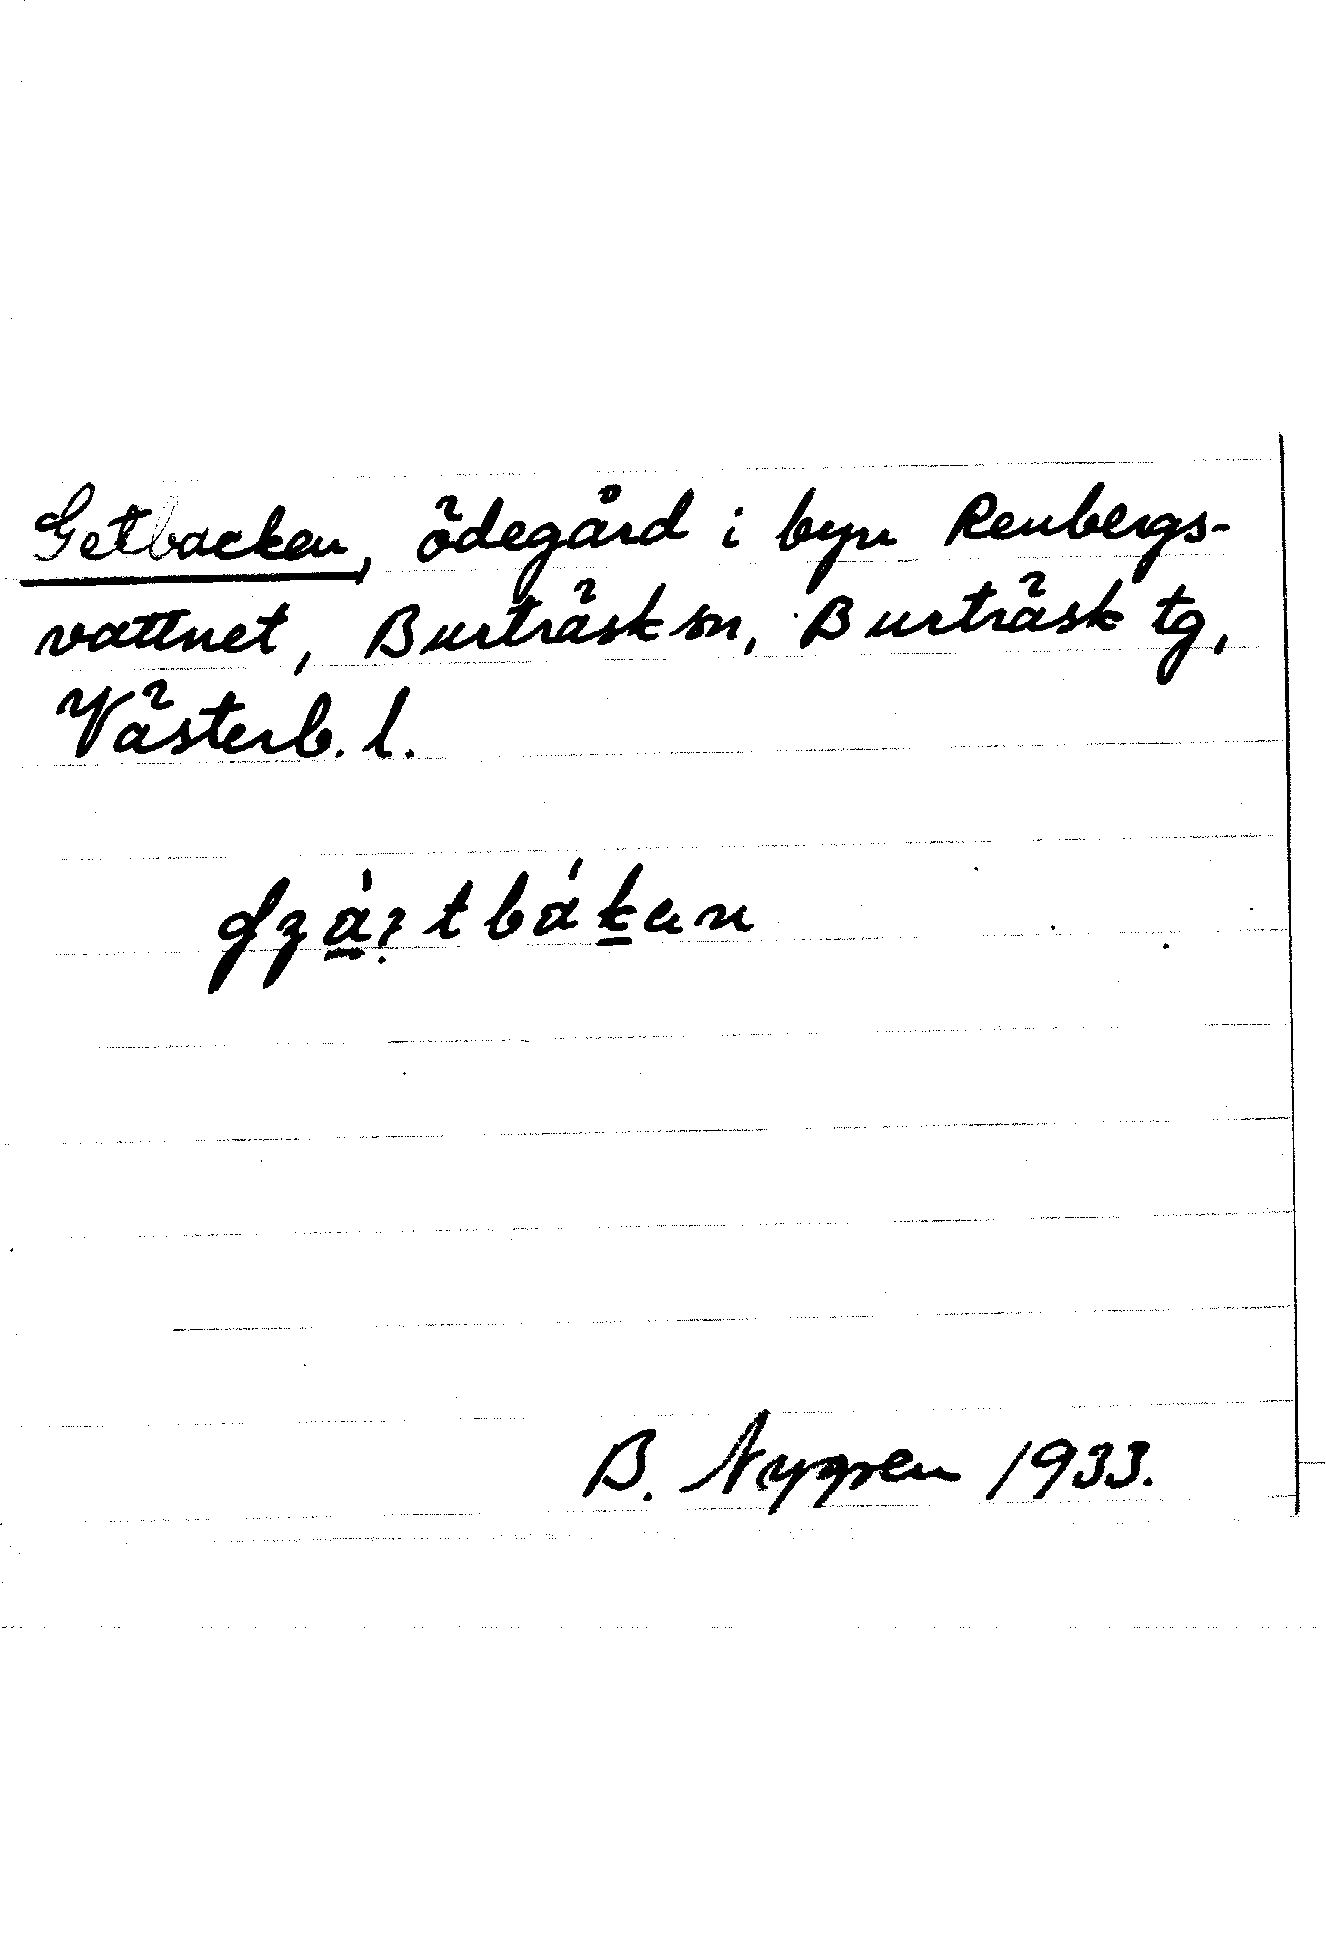 Getbacken, ödegård i byn Renbergs-
vattnet, Burträsk sn, Burträsk tg,
Västerb. l.
B. Nygren 1933.